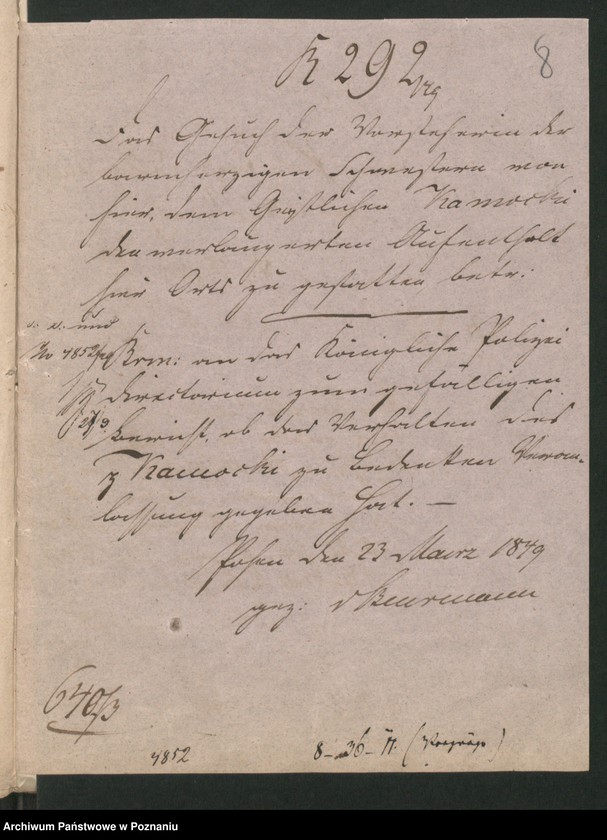 K 292
8
Das Gesuch der Vorsteherin der
barmherzigen Schwestern von
hier, dem Geistlichen Kamocki
den verlängerten Aufenthalt
hier Orts zu gestatten betr:
und
No 4852/49
Brm: an das Königliche Polizei
directorium zum gefälligen
27/3
Bericht, ob das Verhalten des
p Kamocki zu Bedenken Veran-
lassung gegeben hat. —
Posen den 23 Maerz 1849
gez: v Beurmann
640/3
4852
8 - 36 - 11.
Archiwum Państwowe w Poznaniu